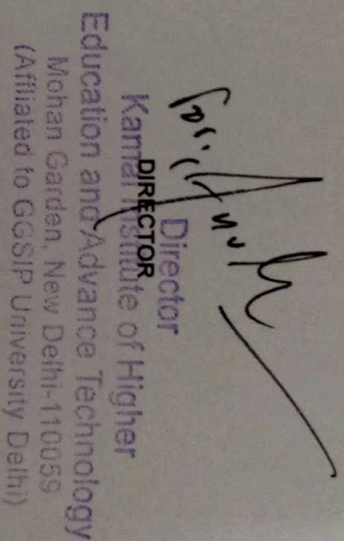 Director
DIRECTOR
Kamal Institute of Higher
Education and Advance Technology
Mohan Garden, New Delhi-110059
(Affiliated to GGSIP University Delhi)